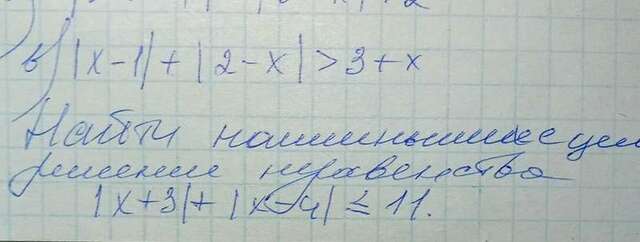 в) |x-1|+|2-x|>3+x
Найти наименьшее цел
решение неравенства
|x+3|+|x-4|≤11.